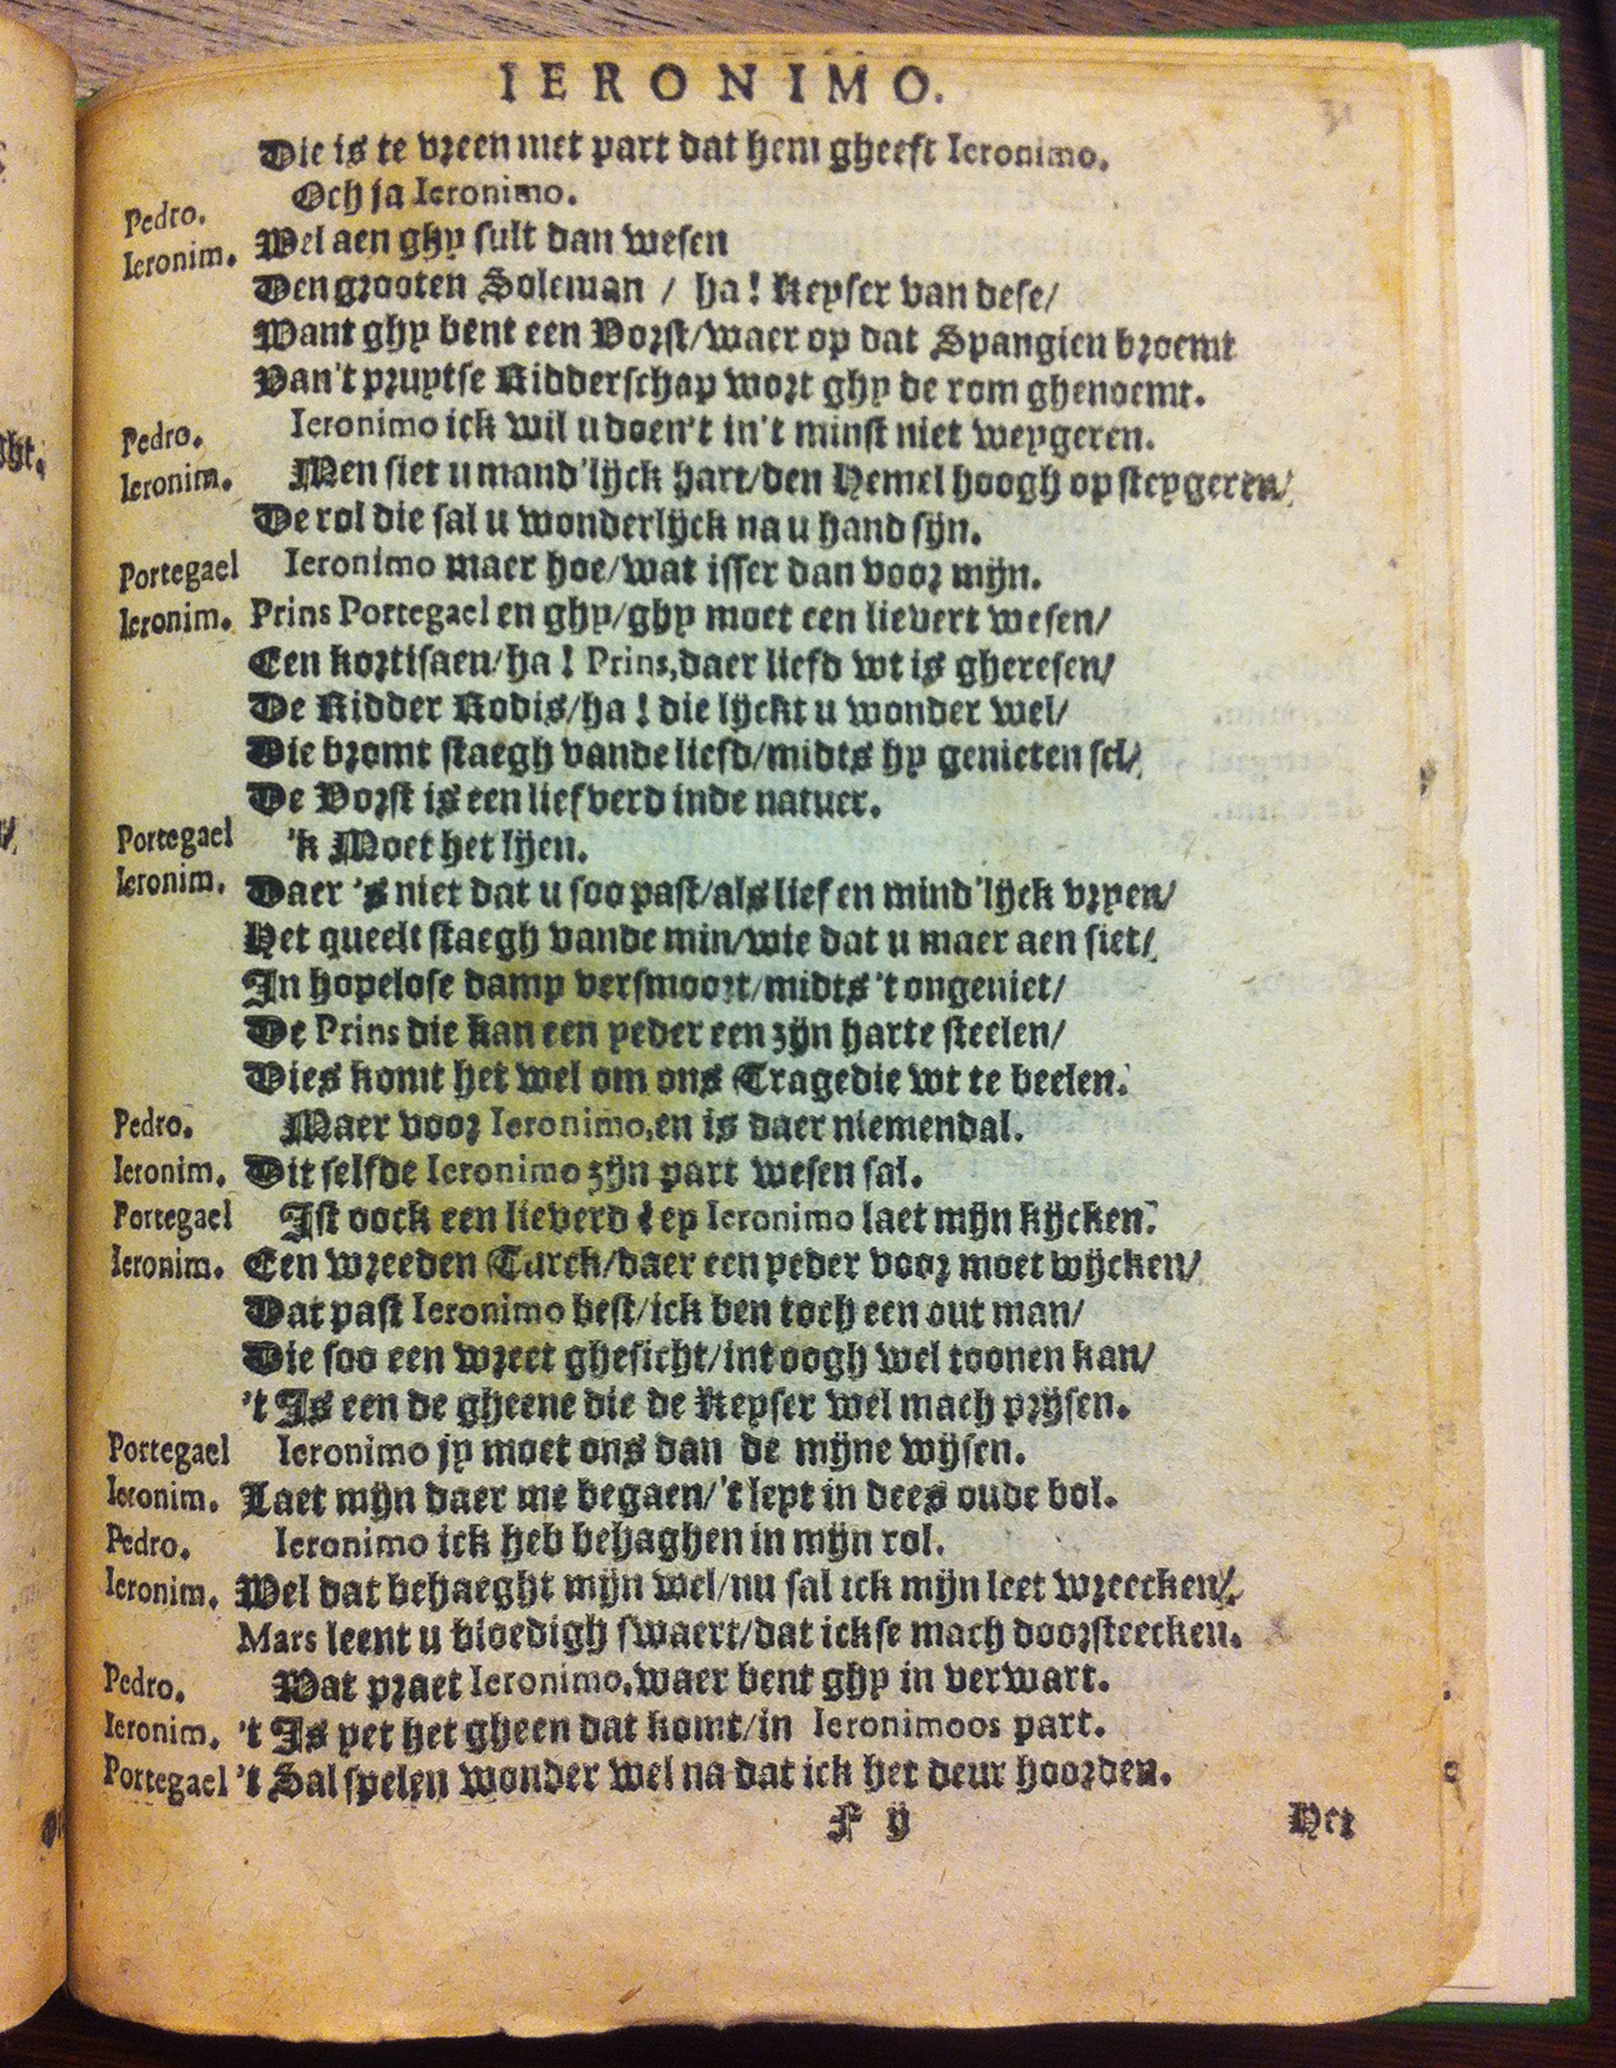 IERONIMO.
31
Die is te vreen met part dat hem gheeft Ieronimo.
Pedro. Och ja Ieronimo.
Ieronim. Wel aen ghy sult dan wesen
Den grooten Soleman / ha! Keyser van dese/
Want ghy bent een Vorst/waer op dat Spangien broemt
Van't pruytse Ridderschap wort ghy de rom ghenoemt.
Pedro. Ieronimo ick wil u doen't in't minst niet weygeren.
Ieronim. Men siet u mand'lijck hart/den Hemel hoogh opsteygeren/
De rol die sal u wonderlijck na u hand sijn.
Portegael Ieronimo maer hoe/wat isser dan voor mijn.
Ieronim. Prins Portegael en ghy/ghy moet een lievert wesen/
Een kortisaen/ha! Prins,daer liefd wt is gheresen/
De Ridder Rodis/ha! die lijckt u wonder wel/
Die bromt staegh vande liefd/midts hy genieten sel/
De Vorst is een liefverd inde natuer.
Portegael 'k Moet het lijen.
Ieronim. Daer 's niet dat u soo past/als lief en mind'lijck vryen/
Het queelt staegh vande min/wie dat u maer aen siet/
In hopelose damp versmoort/midts 't ongeniet/
De Prins die kan een yeder een zijn harte steelen/
Dies komt het wel om ons Tragedie wt te beelen.
Pedro. Maer voor Ieronimo,en is daer niemendal.
Ieronim. Dit selfde Ieronimo zijn part wesen sal.
Portegael Ist oock een lieverd? ey Ieronimo laet mijn kijcken.
Ieronim. Een wreeden Turck/daer een yeder voor moet wijcken/
Dat past Ieronimo best/ick ben toch een out man/
Die soo een wreet ghesicht/int oogh wel toonen kan/
't Is een de gheene die de Keyser wel mach prijsen.
Portegael Ieronimo jy moet ons dan de mijne wijsen.
Ieronim. Laet mijn daer me begaen/'t leyt in dees oude bol.
Pedro. Ieronimo ick heb behaghen in mijn rol.
Ieronim. Wel dat behaeght mijn wel/nu sal ick mijn leet wreecken/
Mars leent u bloedigh swaert/dat ickse mach doorsteecken.
Pedro. Wat praet Ieronimo,waer bent ghy in verwart.
Ieronim. 't Is yet het gheen dat komt/in Ieronimoos part.
Portegael 't Sal spelen wonder wel na dat ick het deur hoorden.
F ij Het